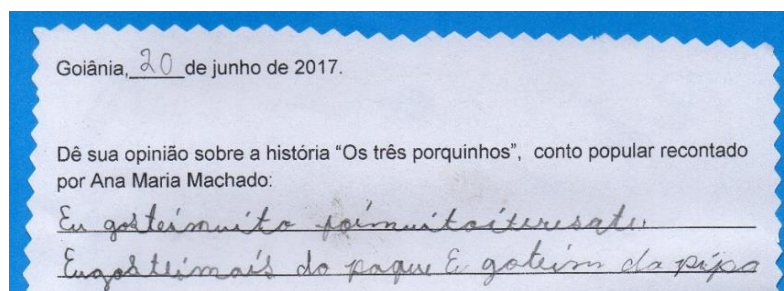 Goiânia, 20 de junho de 2017.
Dê sua opinião sobre a história “Os três porquinhos”, conto popular recontado
por Ana Maria Machado:
Eu gosteimuito foimuitoiteresate
Eugosteimais do paque E goteim da pipa